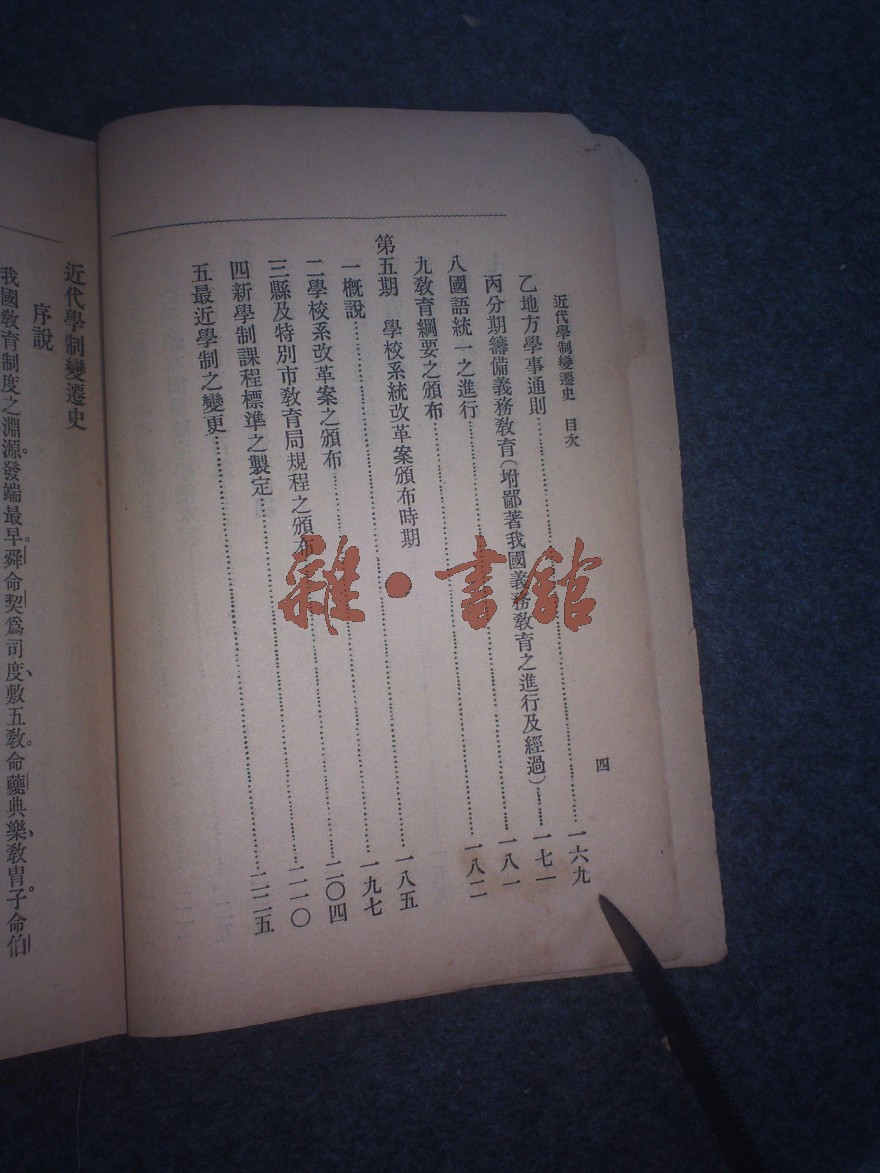 近代學制變遷史 目次 四
乙地方學事通則……一六九
丙分期籌備義務敎育(坿鄙著我國義務敎育之進行及經過)……一七一
八國語統一之進行……一八一
九敎育綱要之頒布……一八二
第五期 學校系統改革案頒布時期
一槪說……一八五
二學校系改革案之頒布……一九七
三縣及特別市敎育局規程之頒布……二〇四
四新學制課程標準之製定……二一〇
五最近學制之變更……二二五
近代學制變遷史
序說
我國敎育制度之淵源。發端最早。舜命契爲司度、敷五敎。命夔典樂、敎胄子。命伯
雜·書館